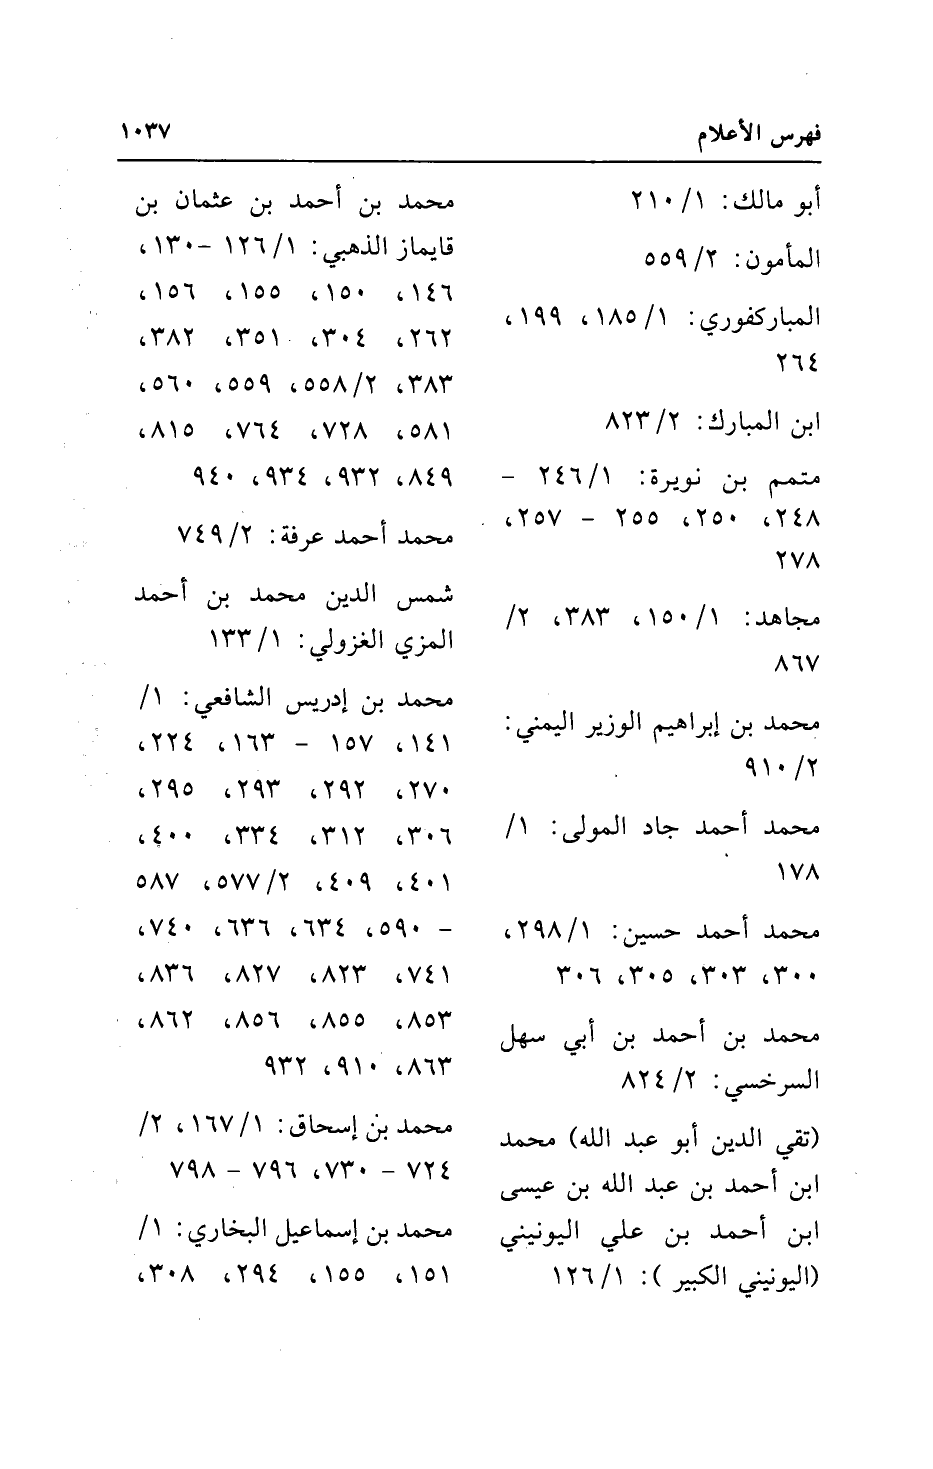 فهرس الأعلام ١٠٣٧
أبو مالك: ١/ ٢١٠
المأمون: ٢/ ٥٥٩
المباركفوري: ١/ ١٨٥، ١٩٩،
٢٦٤
ابن المبارك: ٢/ ٨٢٣
متمم بن نويرة: ١/ ٢٤٦ –
٢٤٨، ٢٥٠، ٢٥٥ – ٢٥٧،
٢٧٨
مجاهد: ١/ ١٥٠، ٣٨٣، ٢/
٨٦٧
محمد بن إبراهيم الوزير اليمني:
٢/ ٩١٠
محمد أحمد جاد المولى: ١/
١٧٨
محمد أحمد حسين: ١/ ٢٩٨،
٣٠٠، ٣٠٣، ٣٠٥، ٣٠٦
محمد بن أحمد بن أبي سهل
السرخسي: ٢/ ٨٢٤
(تقي الدين أبو عبد الله) محمد
ابن أحمد بن عبد الله بن عيسى
ابن أحمد بن علي اليونيني
(اليونيني الكبير ): ١/ ١٢٦
محمد بن أحمد بن عثمان بن
قايماز الذهبي: ١/ ١٢٦ –١٣٠،
١٤٦، ١٥٠، ١٥٥، ١٥٦،
٢٦٢، ٣٠٤، ٣٥١، ٣٨٢،
٣٨٣، ٢/ ٥٥٨، ٥٥٩، ٥٦٠،
٥٨١، ٧٢٨، ٧٦٤، ٨١٥،
٨٤٩، ٩٣٢، ٩٣٤، ٩٤٠
محمد أحمد عرفة: ٢/ ٧٤٩
شمس الدين محمد بن أحمد
المزي الغزولي: ١/ ١٣٣
محمد بن إدريس الشافعي: ١/
١٤١، ١٥٧ – ١٦٣، ٢٢٤،
٢٧٠، ٢٩٢، ٢٩٣، ٢٩٥،
٣٠٦، ٣١٢، ٣٣٤، ٤٠٠،
٤٠١، ٤٠٩، ٢/ ٥٧٧، ٥٨٧
– ٥٩٠، ٦٣٤، ٦٣٦، ٧٤٠،
٧٤١، ٨٢٣، ٨٢٧، ٨٣٦،
٨٥٣، ٨٥٥، ٨٥٦، ٨٦٢،
٨٦٣، ٩١٠، ٩٣٢
محمد بن إسحاق: ١/ ١٦٧، ٢/
٧٢٤ – ٧٣٠، ٧٩٦ – ٧٩٨
محمد بن إسماعيل البخاري: ١/
١٥١، ١٥٥، ٢٩٤، ٣٠٨،